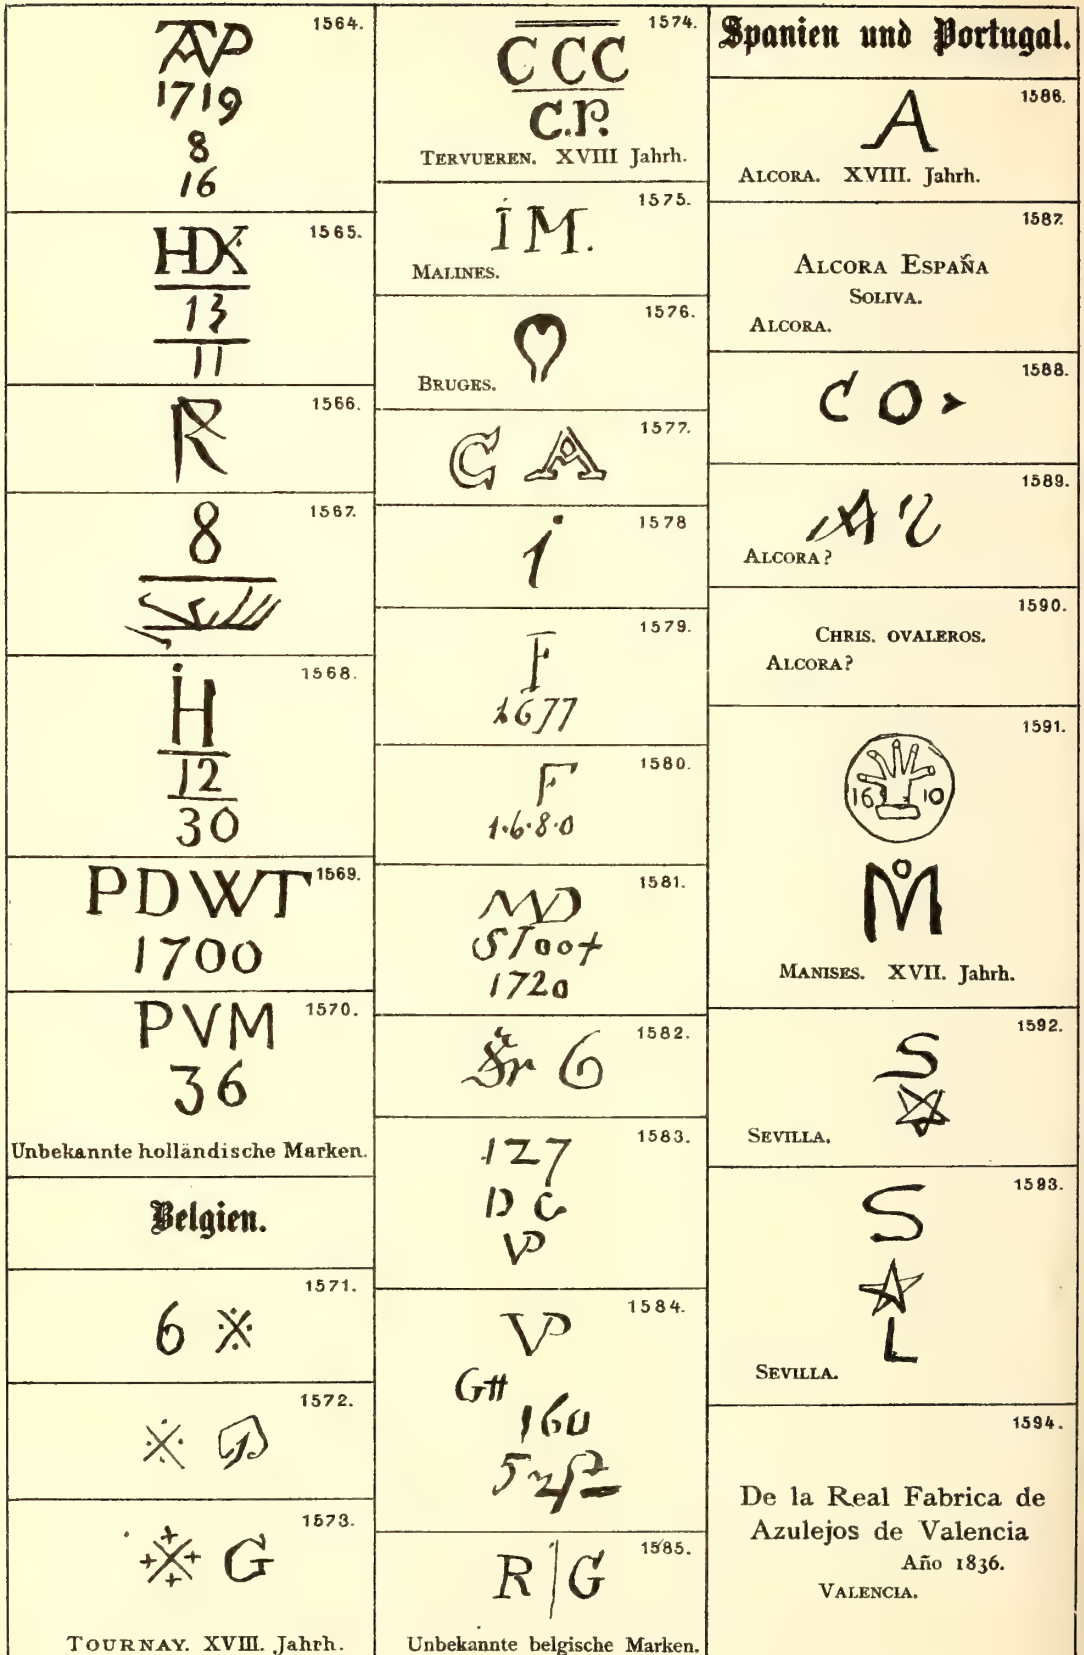 1564.
AP
1719
8
16
1565.
HDK
13
11
1566.
R
1567.
8
1568.
iH
12
30
1569.
PDWT
1700
1570.
PVM
36
Unbekannte holländische Marken.
Belgien.
1571.
6 ※
1572.
※
1573.
G
TOURNAY. XVIII. Jahrh.
1574.
C CC
C.P.
TERVUEREN. XVIII Jahrh.
1575.
İ M.
MALINES.
1576.
BRUGES.
1577.
C A
1578
i
1579.
F
1677
1580.
F
1·6·8·0
1581.
MD
1720
1582.
6
1583.
127
D C
VP
1584.
VP
160
1585.
R|G
Unbekannte belgische Marken.
Spanien und Portugal.
1586.
A
ALCORA. XVIII. Jahrh.
1587.
ALCORA ESPAÑA
SOLIVA.
ALCORA.
1588.
C O
1589.
A
ALCORA?
1590.
CHRIS. OVALEROS.
ALCORA?
1591.
16 10
M
MANISES. XVII. Jahrh.
1592.
S
SEVILLA.
1593.
S
L
SEVILLA.
1594.
De la Real Fabrica de
Azulejos de Valencia
Año 1836.
VALENCIA.